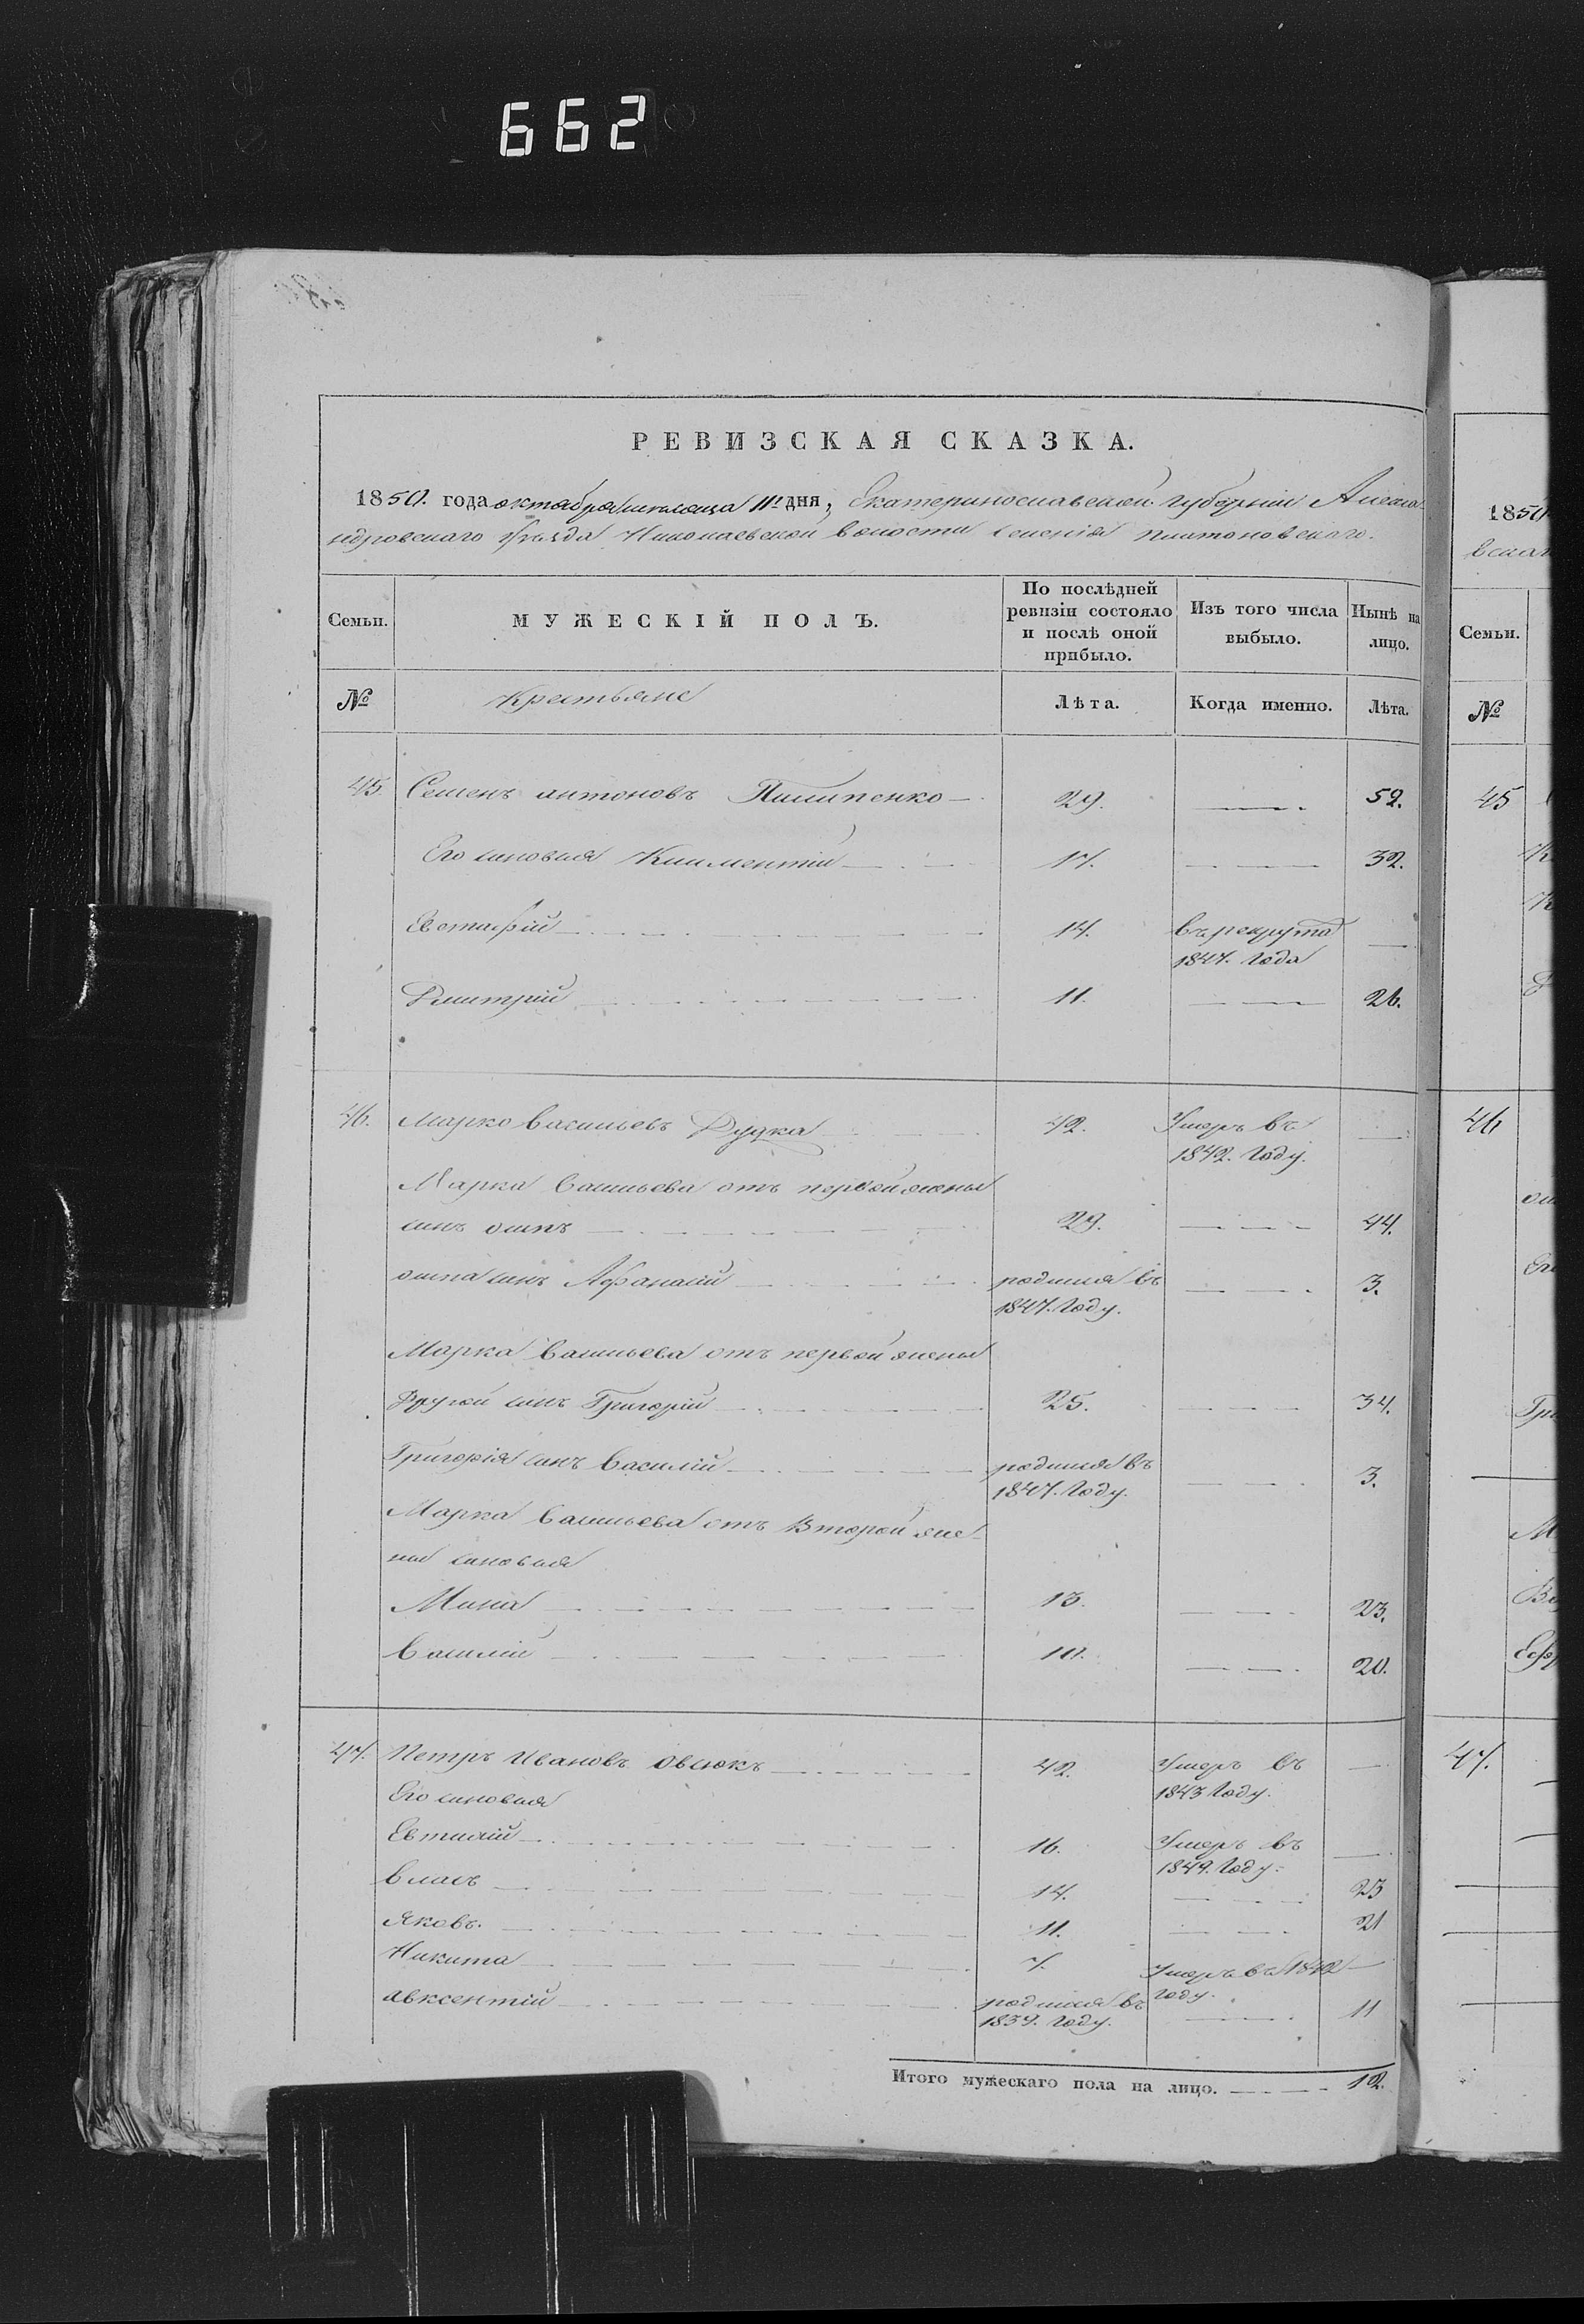 662
РЕВИЗСКАЯ СКАЗКА.
1850. года октября месяца 11 дня, Екатеринославской губернии Алекса-
ндровского уезда Николаевской волости селения Платоновского.
Семьи.
МУЖЕСКІЙ ПОЛЪ.
По послѣдней ревизіи состояло и послѣ оной прибыло.
Изъ того числа выбыло.
Нынѣ на лицо.
Семьи.
№
Крестьяне
Лѣта.
Когда именно.
Лѣта.
№
1850
45. Семенъ антоновъ Пилипенко 29. 52. 45
Его сыновья Климентій 17. 32.
Евстафій 14. въ рекруты
1847. Года
Дмитрій 11. 26.
46. Марко васильевъ Дудка 42. Умеръ въ 46
1842. Году.
Марка Васильева отъ первой жены
сынъ осипъ 29. 44.
осипа сынъ Афанасій родился въ 3.
1847. Году.
Марка Васильева отъ первой жены
Другой сынъ Григорій 25. 34.
Григорія сынъ Василій родился въ 3.
1847. Году.
Марка Васильева отъ Второй же-
ны сыновья
Мина 13. 23.
Василій 10. 20.
47. Петръ Ивановъ Овсюкъ 42. Умеръ въ 47.
Его сыновья 1843 Году.
Евтихій 16. Умеръ въ
1849. Году.
власъ 14. 23
Яковъ. 11. 21
Никита 7. Умеръ въ 1842
Году.
авксентій родился въ 11
1839. Году.
Итого мужескаго пола на лицо. 12.